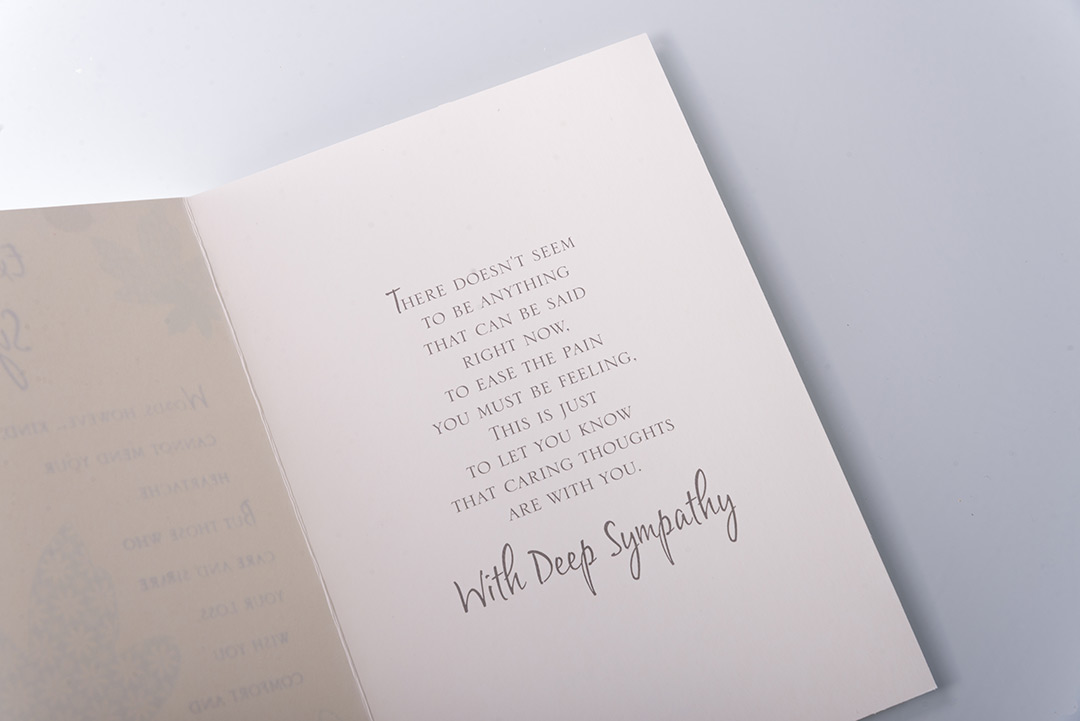 WORDS, HOWEVER KIND
CANNOT MEND YOUR
HEARTACHE
BUT THOSE WHO
CARE AND SHARE
YOUR LOSS,
WISH YOU
COMFORT AND
THERE DOESN'T SEEM
TO BE ANYTHING
THAT CAN BE SAID
RIGHT NOW,
TO EASE THE PAIN
YOU MUST BE FEELING,
THIS IS JUST
TO LET YOU KNOW
THAT CARING THOUGHTS
ARE WITH YOU.
With Deep Sympathy